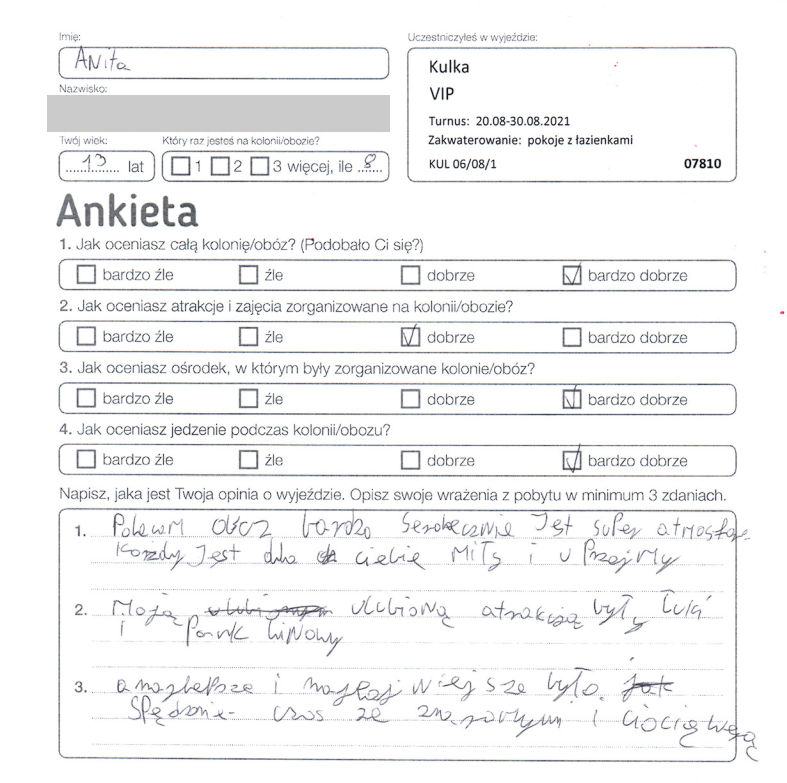 Imię:
Anita
Nazwisko:
Twój wiek:
13 lat
Który raz jesteś na kolonii/obozie?
1 2 3 więcej, ile 8
Uczestniczyłeś w wyjeździe:
Kulka
VIP
Turnus: 20.08-30.08.2021
Zakwaterowanie: pokoje z łazienkami
KUL 06/08/1 07810
Ankieta
1. Jak oceniasz całą kolonię/obóz? (Podobało Ci się?)
bardzo źle źle dobrze bardzo dobrze
2. Jak oceniasz atrakcje i zajęcia zorganizowane na kolonii/obozie?
bardzo źle źle dobrze bardzo dobrze
3. Jak oceniasz ośrodek, w którym były zorganizowane kolonie/obóz?
bardzo źle źle dobrze bardzo dobrze
4. Jak oceniasz jedzenie podczas kolonii/obozu?
bardzo źle źle dobrze bardzo dobrze
Napisz, jaka jest Twoja opinia o wyjeździe. Opisz swoje wrażenia z pobytu w minimum 3 zdaniach.
1. Polecam obóz bardzo Jest super
Jest dla ciebie miły i uprzejmy
2. Moją ulubioną atrakcją były Łuki
i Park linowy
3. a najlepsze i było
czas ze znajomymi i ciocią